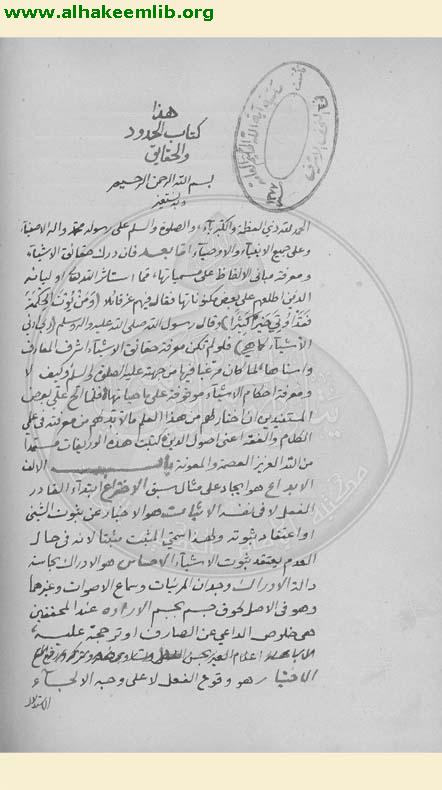 www.alhakeemlib.org
هذا
كتاب الحدود
والحقايق
بسم الله الرحمن الرحيم
وبه نستعين
الحمد لله ذي العظمة والكبرياء والصلوة والسلم على رسوله محمد واله الاصفياء
وعلى جميع الانبياء والاوصياء اما بعد فان درك حقائق الاشياء
ومعرفة مبانى الالفاظ على مسمياتها مما استاثر الله بها اوليائه
الذين اطلعهم على بعض مكنوناتها فقال فيهم عز قائلا (ومن يؤت الحكمة
فقد أوتي خيرا كثيرا) وقال رسول الله صلى الله عليه واله وسلم (رب ارني
الأشياء كما هي) فلو لم تكن معرفة حقائق الاشياء اشرف المعارف
واسناها لما كان مرغبا فيها من جهته عليه الصلوة والسلم وكيف لا
ومعرفة احكام الاشياء موقوفة على ماهياتها فلما الح على بعض
المستفيدين ان اختار لهم من هذا العلم ما لابد لهم من معرفته في علمي
الكلام والفقه اعنى اصول الدين كتبت هذه الوريقات مستمدا
من الله العزيز العصمة والمعونة باب الالف
الابداع هو ايجاد على مثال سبق الاختراع ابتداء القادر
الفعل لا في نفسه الاثبات هو الاخبار عن ثبوت الشئ
او اعتقاد ثبوته ولهذا اسمي المثبت مثبتا لانه في حال
العدم يعتقد ثبوت الاشياء الاحساس هو الادراك بحاسة
دالة الادراك وجدان المرئيات وسماع الاصوات وغيرها
وهو في الاصل لحوق جسم بجسم الاراده عند المحققين
هي خلوص الداعي عن الصارف او ترجحه عليه
الاباحة اعلام الغير بحسن
الاختيار هو وقوع الفعل لا على وجه الالجاء